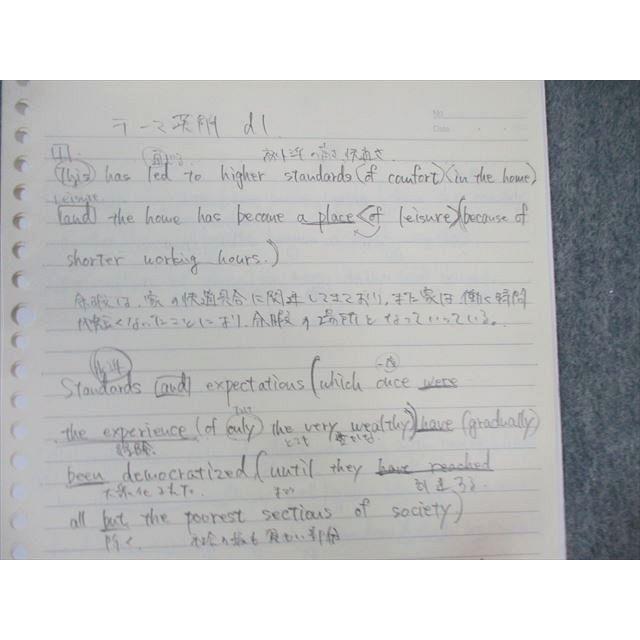 テーマ読解 d1
No.
Date
1
高水準の高さ 快適さ
(This) has led to higher standards (of comfort) (in the home)
leisure
and the home has become a place <of leisure> (because of
shorter working hours.)
余暇は、家の快適具合に関連してきており、また家は働く時間
が短くなったことにより、余暇の場所となっていっている。
水準
一度
Standards and expectations (which once were
the experience (of only) the very wealthy) have (gradually)
経験
been democratized (until they have reached
大衆化された
まで
all but the poorest sections of society)
除く
社会の最も貧しい部分